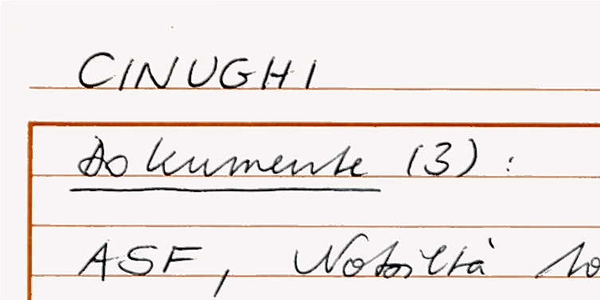 CINUGHI
Dokumente (3):
ASF, Nobiltà